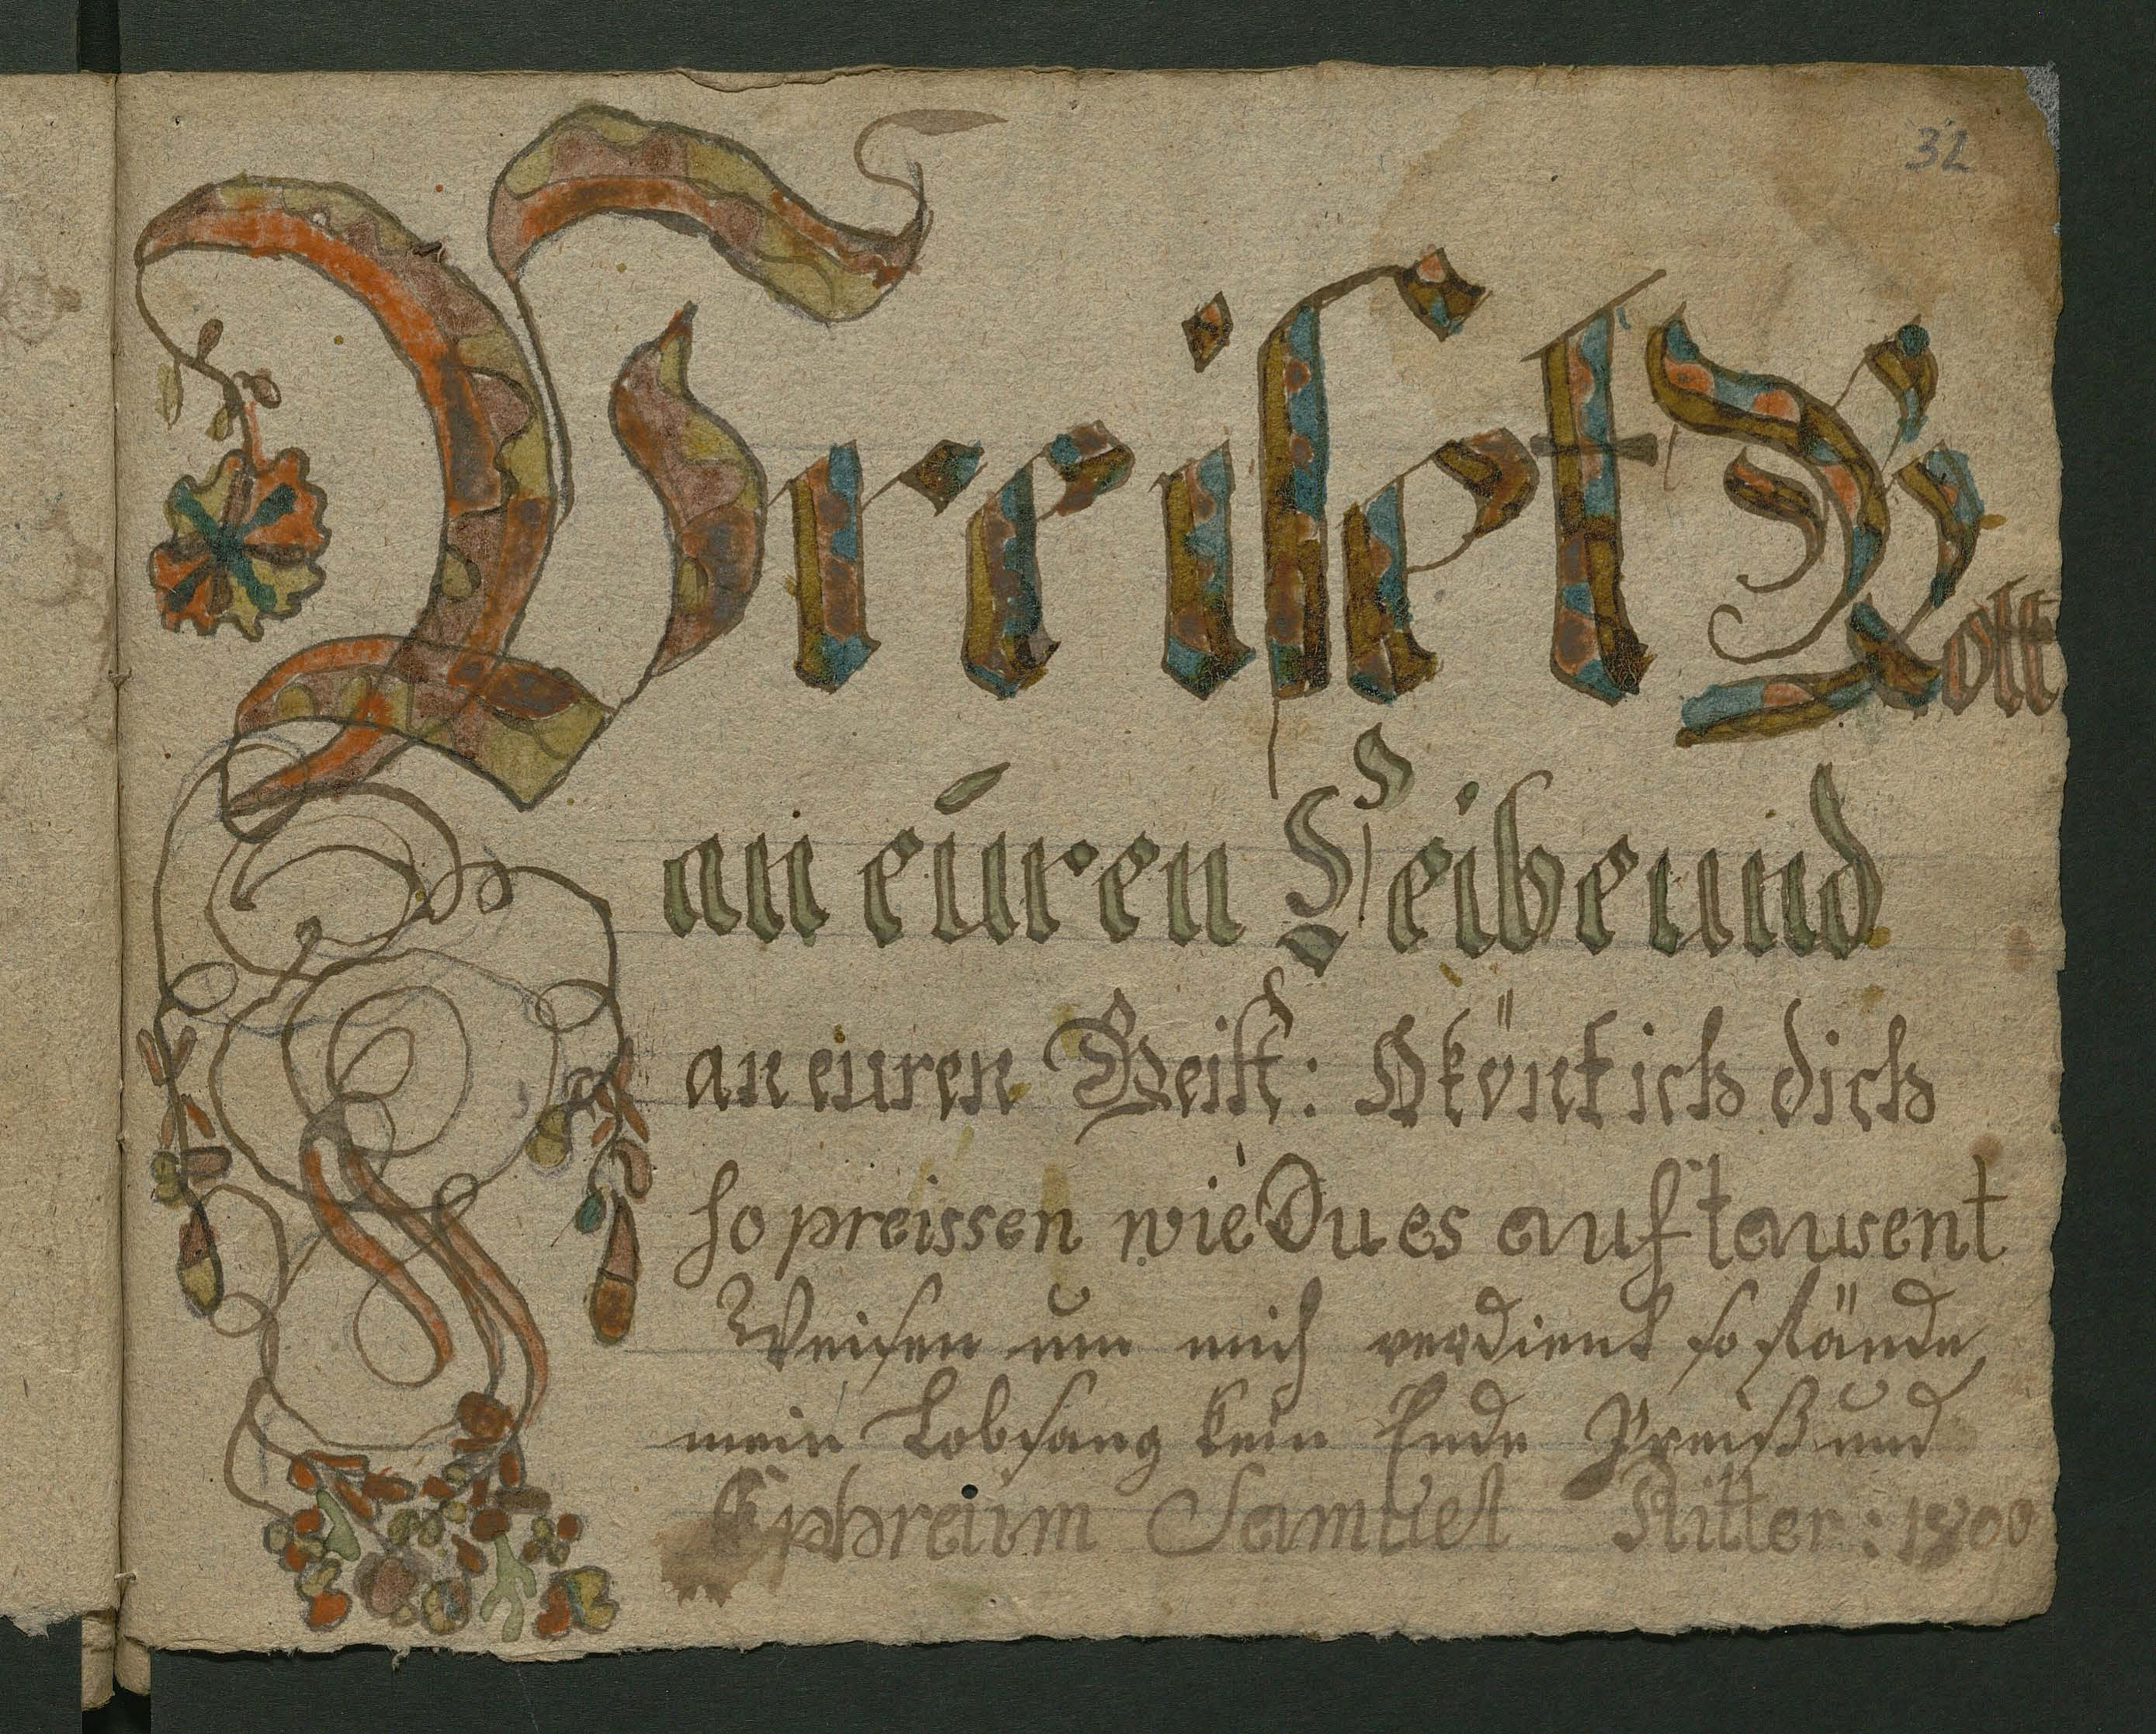 32
Preiset Gott
an euren Leibe und
an euren Geist: O könt ich dich
so preissen wie Du es auf tausent
Weisen um mich verdient so stände
mein Lobsang kein Ende Preiß und
Ephreim Samuel Ritter: 1800